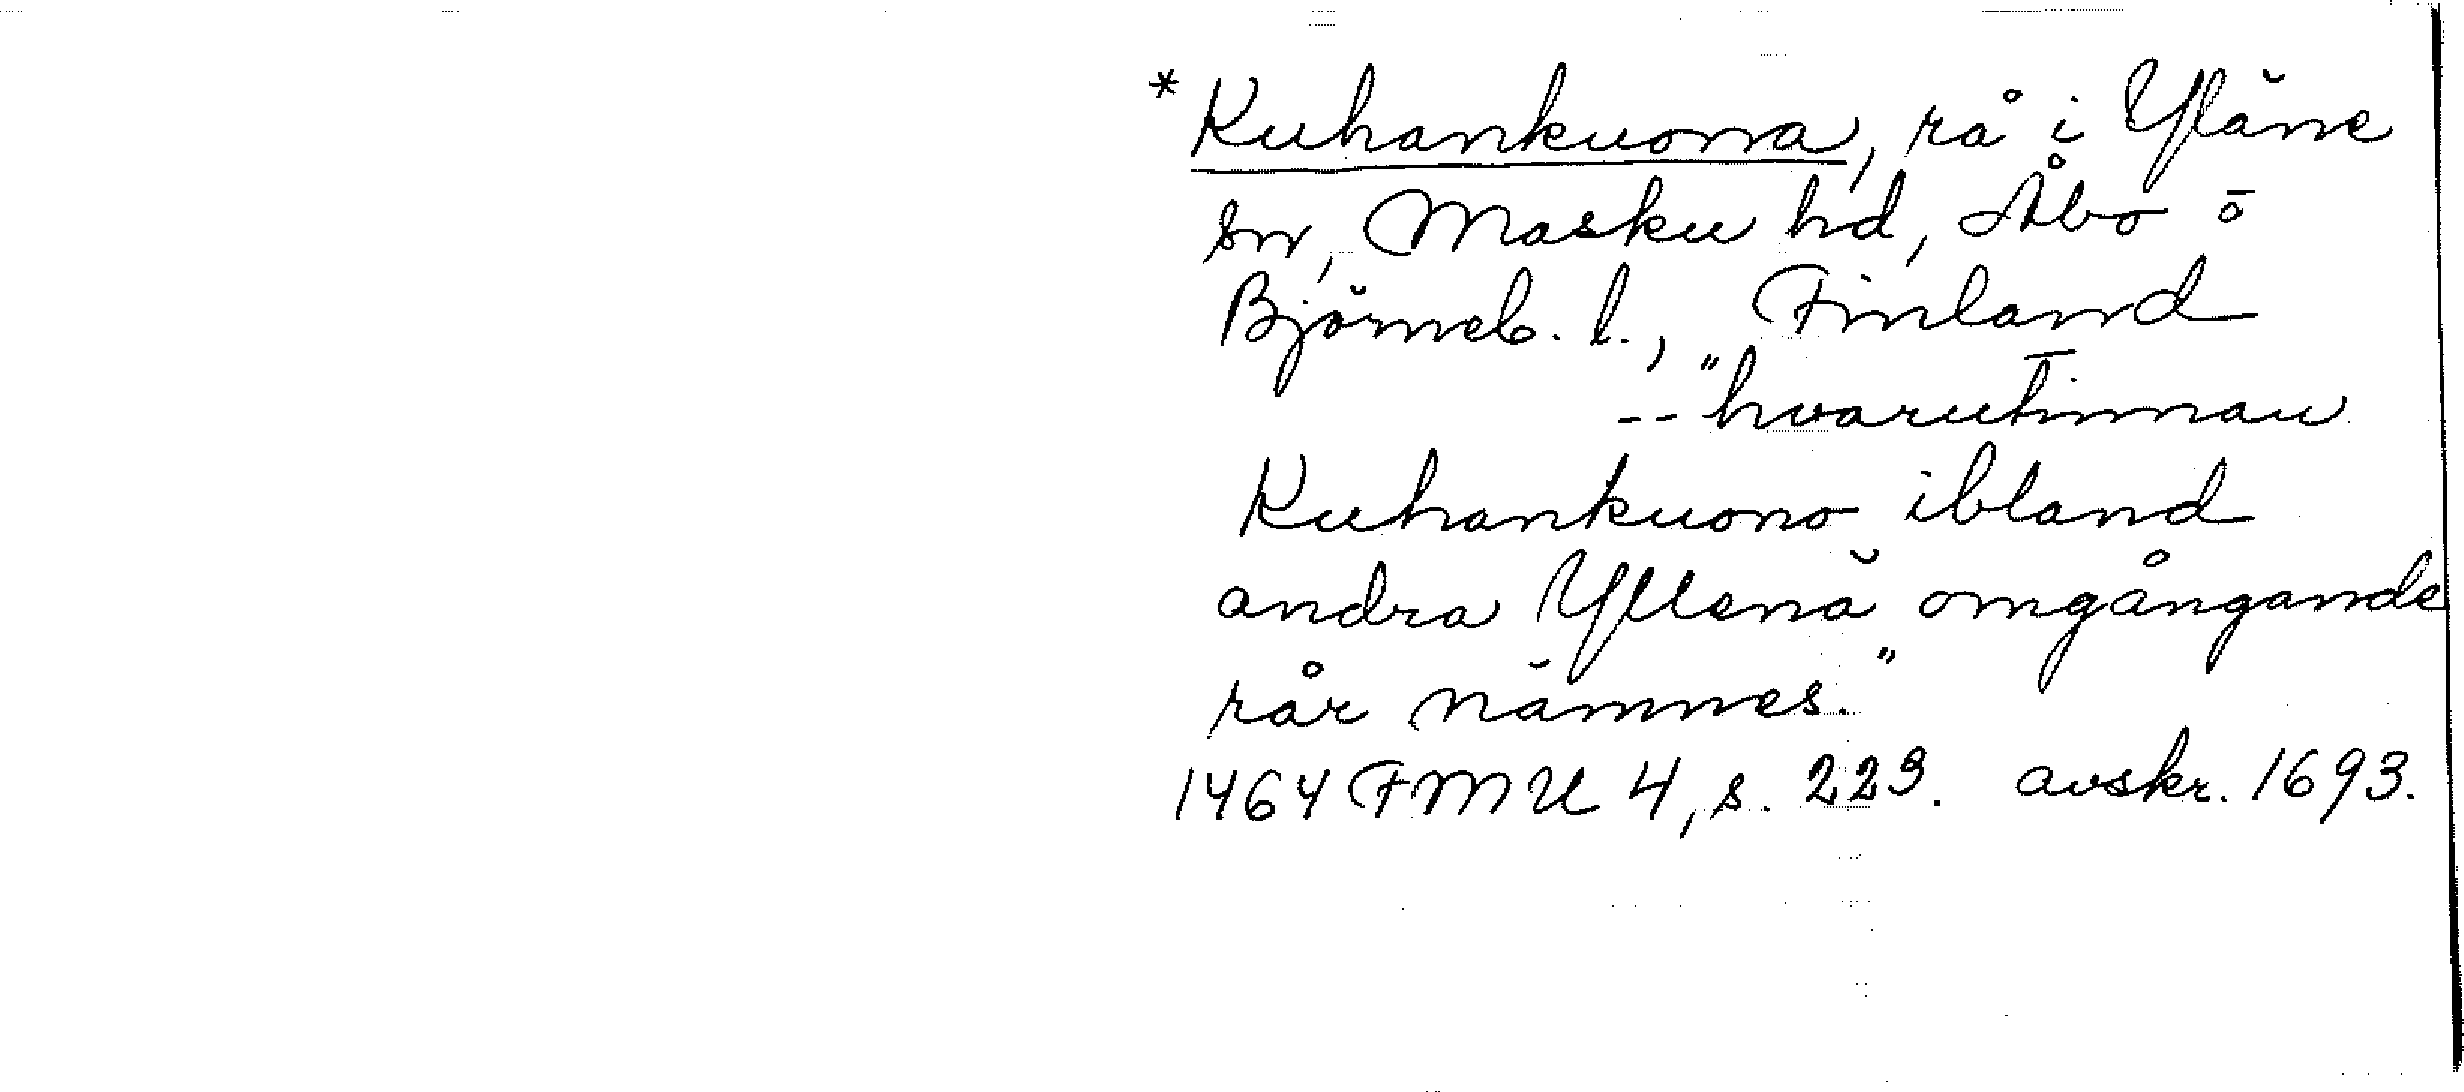 *Kuhankuona, rå i Yläne
sn, Masku hd, Åbo o
Björneb. l., Finland
-- "hvarutinnan
Kuhankuono ibland
andra Yllenä omgångande
rår nämnes."
1464 FMU 4, s. 223. avskr. 1693.